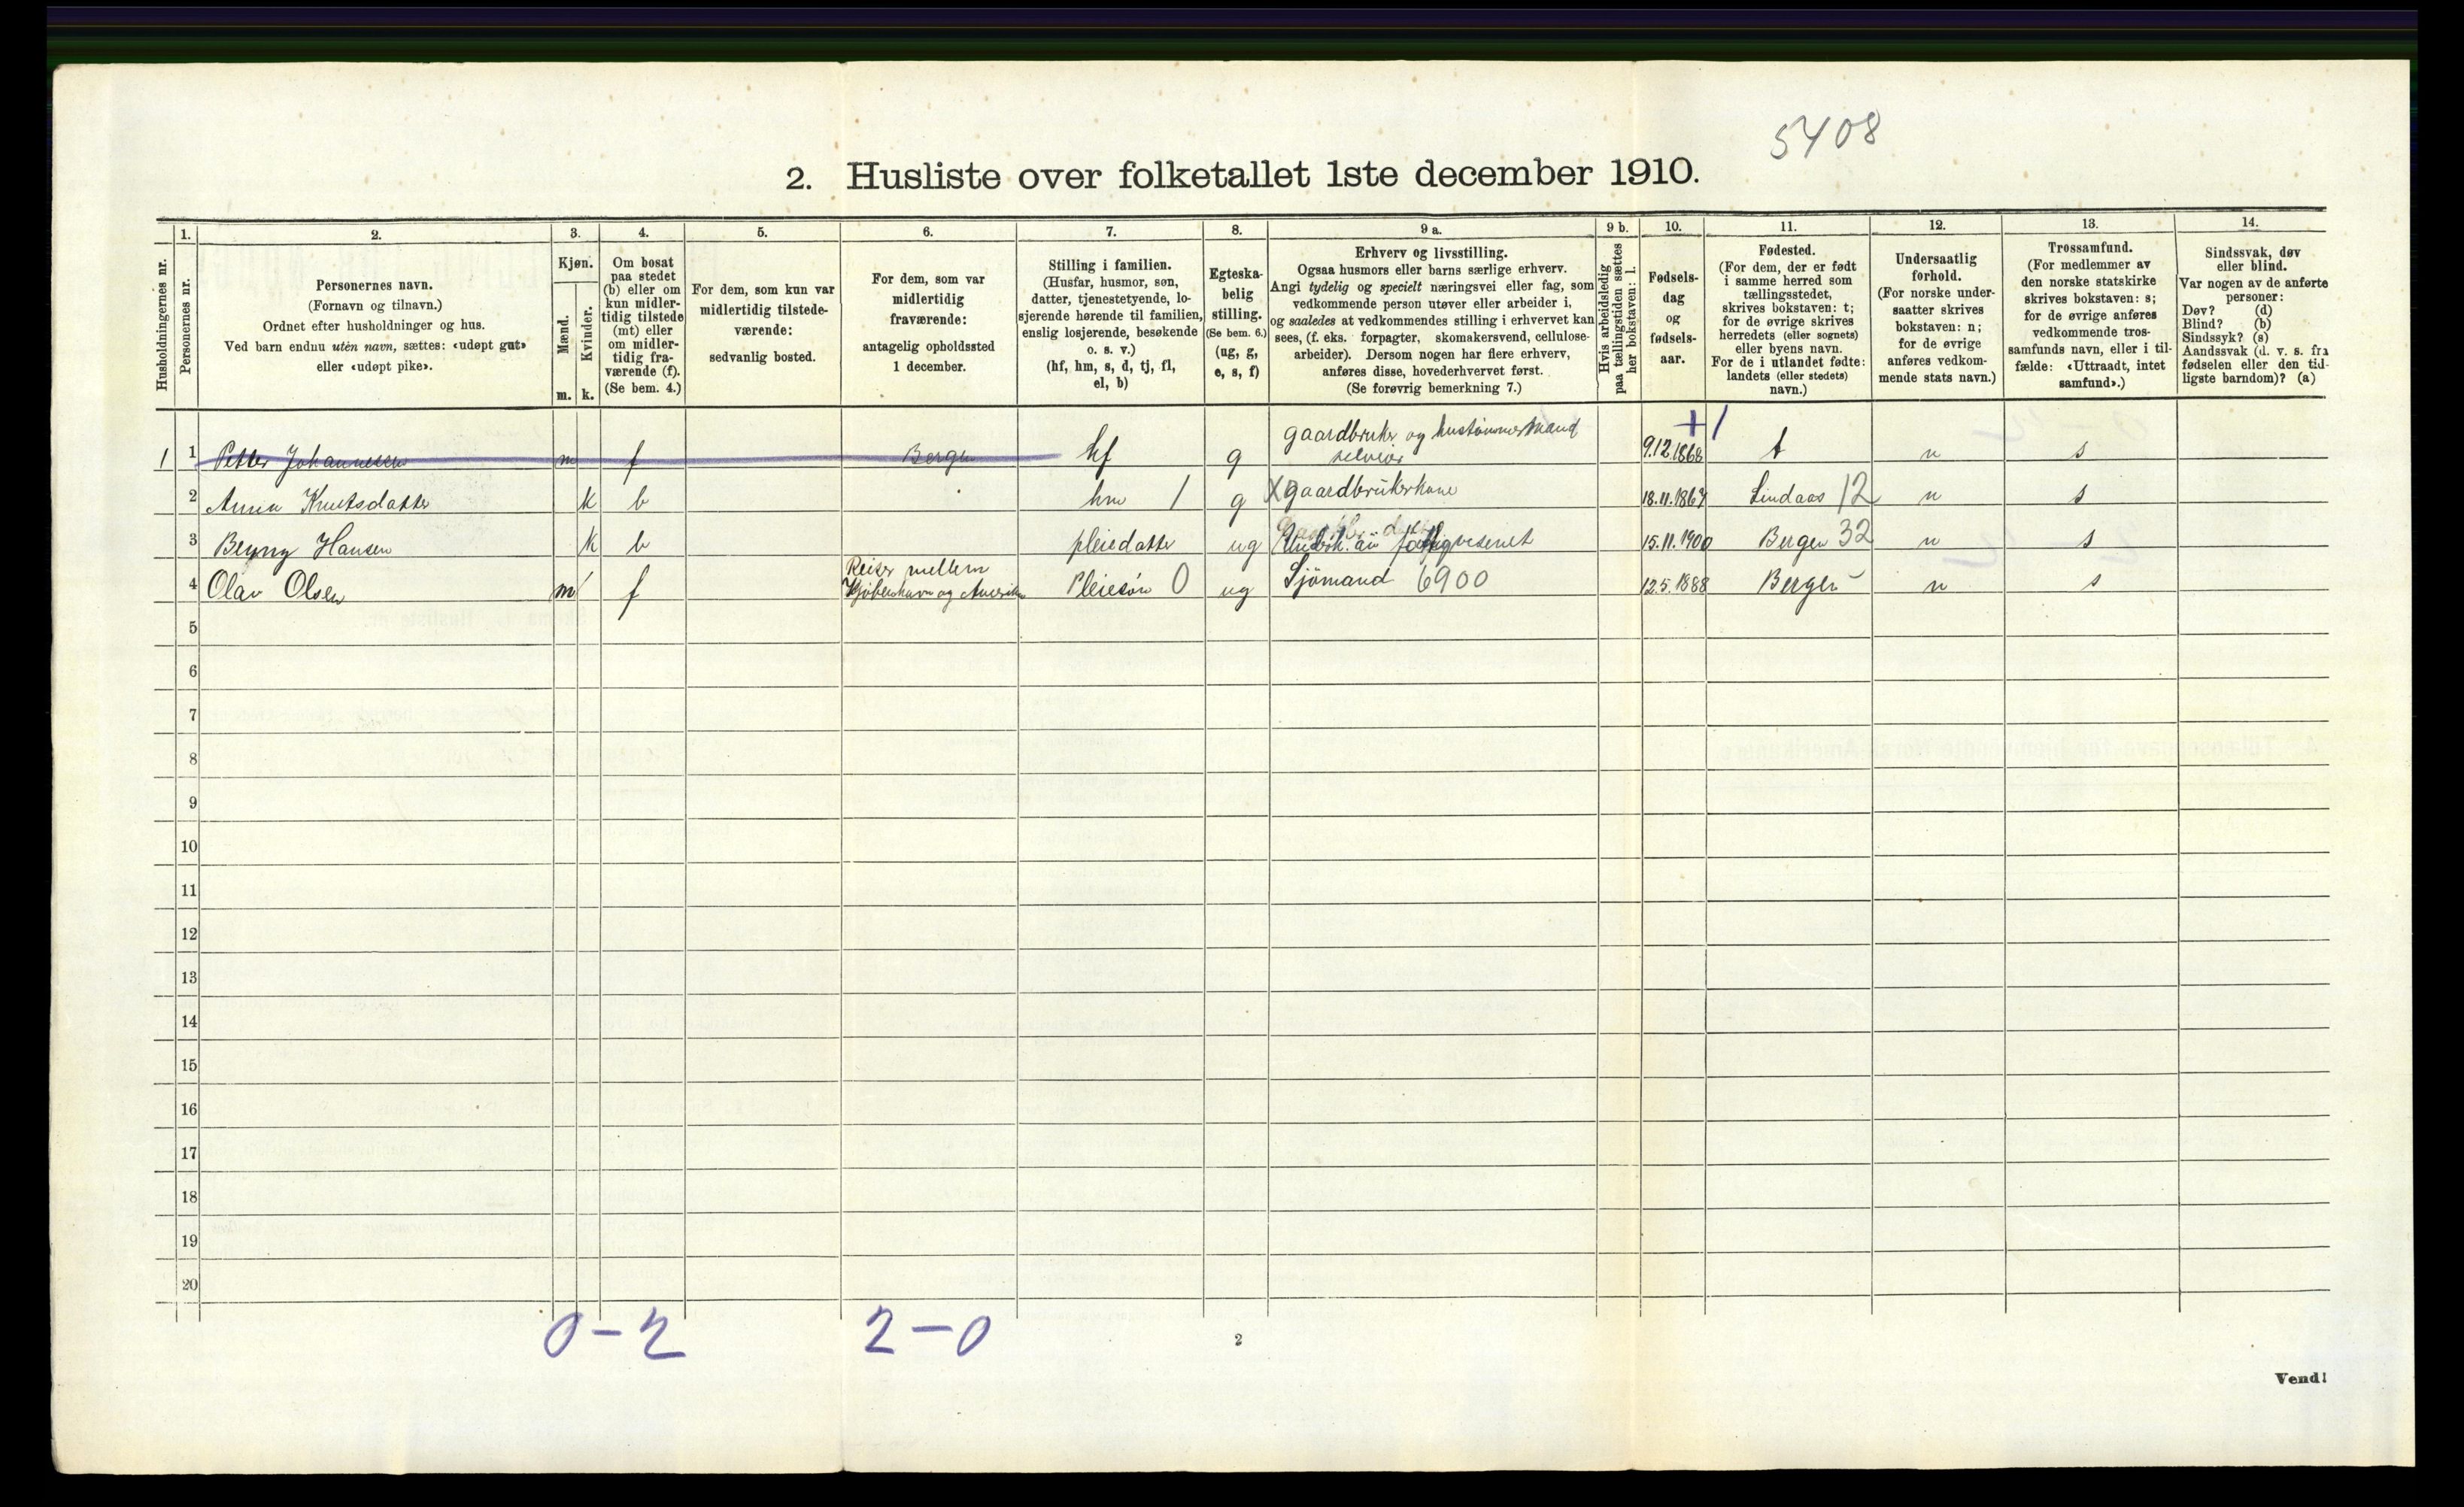 5408
2. Husliste over folketallet 1ste december 1910.
Husholdningernes nr.
1.
Personernes nr.
2.
Personernes navn.
(Fornavn og tilnavn.)
Ordnet efter husholdninger og hus.
Ved barn endnu uten navn, sættes: «udøpt gut»
eller «udøpt pike».
3.
Kjøn.
Mænd.
Kvinder.
m. k.
4.
Om bosat
paa stedet
(b) eller om
kun midler-
tidig tilstede
(mt) eller
om midler-
tidig fra-
værende (f).
(Se bem. 4.)
5.
For dem, som kun var
midlertidig tilstede-
værende:
sedvanlig bosted.
6.
For dem, som var
midlertidig
fraværende:
antagelig opholdssted
1 december.
7.
Stilling i familien.
(Husfar, husmor, søn,
datter, tjenestetyende, lo-
sjerende hørende til familien,
enslig losjerende, besøkende
o. s. v.)
(hf, hm, s, d, tj, fl,
el, b)
8.
Egteska-
belig
stilling.
(Se bem. 6.)
(ug, g,
e, s, f)
9 a.
Erhverv og livsstilling.
Ogsaa husmors eller barns særlige erhverv.
Angi tydelig og specielt næringsvei eller fag, som
vedkommende person utøver eller arbeider i,
og saaledes at vedkommendes stilling i erhvervet kan
sees, (f. eks. forpagter, skomakersvend, cellulose-
arbeider). Dersom nogen har flere erhverv,
anføres disse, hovederhvervet først.
(Se forøvrig bemerkning 7.)
9 b.
Hvis arbeidsledig
paa tællingstiden sættes
her bokstaven: l.
10.
Fødsels-
dag
og
fødsels-
aar.
11.
Fødested.
(For dem, der er født
i samme herred som
tællingsstedet,
skrives bokstaven: t;
for de øvrige skrives
herredets (eller sognets)
eller byens navn.
For de i utlandet fødte:
landets (eller stedets)
navn.)
12.
Undersaatlig
forhold.
(For norske under-
saatter skrives
bokstaven: n;
for de øvrige
anføres vedkom-
mende stats navn.)
13.
Trossamfund.
(For medlemmer av
den norske statskirke
skrives bokstaven: s;
for de øvrige anføres
vedkommende tros-
samfunds navn, eller i til-
fælde: «Uttraadt, intet
samfund».)
14.
Sindssvak, døv
eller blind.
Var nogen av de anførte
personer:
Døv? (d)
Blind? (b)
Sindssyk? (s)
Aandssvak (d. v. s. fra
fødselen eller den tid-
ligste barndom)? (a)
1 1 Petter Johannesen m f Bergen hf g gaardbruker og hustømmermand selveier 9.12.1868 t n s
2 Anna Knutsdatter k b hm 1 g X gaardbrukerkone 18.11.1864 Lindaas 12 n s
3 Hansen k b pleiedatter ug fattigvesenet 15.11.1900 Bergen 32 n s
4 Olav Olsen m f Reiser mellem Kjøbenhavn og Amerika Pleiesøn 0 ug Sjömand 6900 12.5.1888 Bergen n s
5
6
7
8
9
10
11
12
13
14
15
16
17
18
19
20
0-2 2-0
2
Vend!